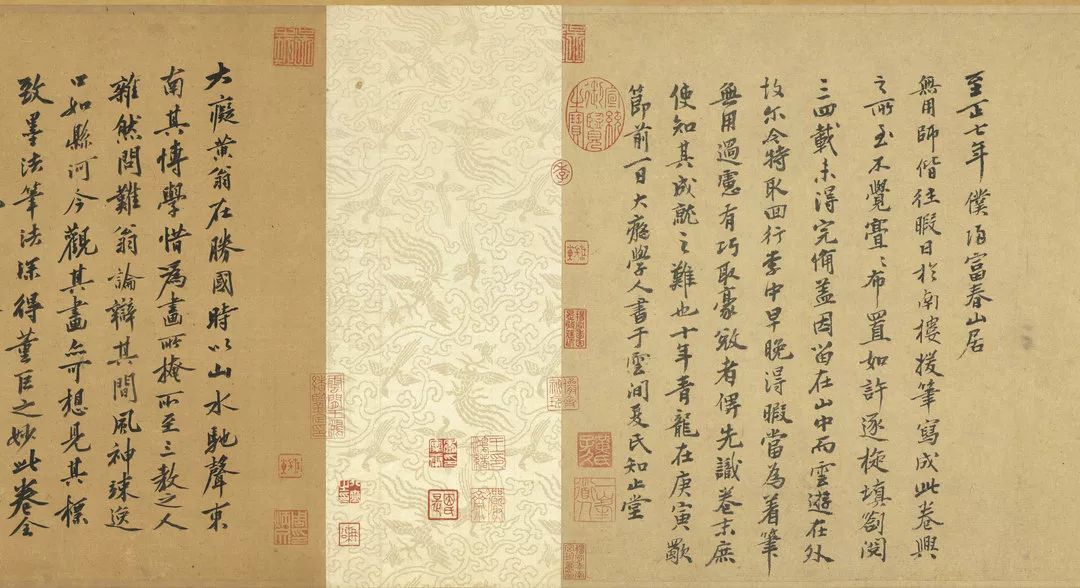 至正七年僕歸富春山居
無用師偕往暇日於南樓援筆寫成此卷興
之所至不覺亹〻布置如許逐旋填劄閱
三四載未得完備蓋因留在山中而雲遊在外
故尔今特取回行李中早晚得暇當為着筆
無用過慮有巧取豪敓者俾先識卷末庶
使知其成就之難也十年青龍在庚寅歜
節前一日大癡學人書于雲間夏氏知止堂
大癡黃翁在勝國時以山水馳聲東
南其博學惜為畫所掩所至三教之人
雜然問難翁論辯其間風神竦逸
口如懸河今觀其畫亦可想見其標
致墨法筆法深得董巨之妙此卷全
宣統御覽之寶